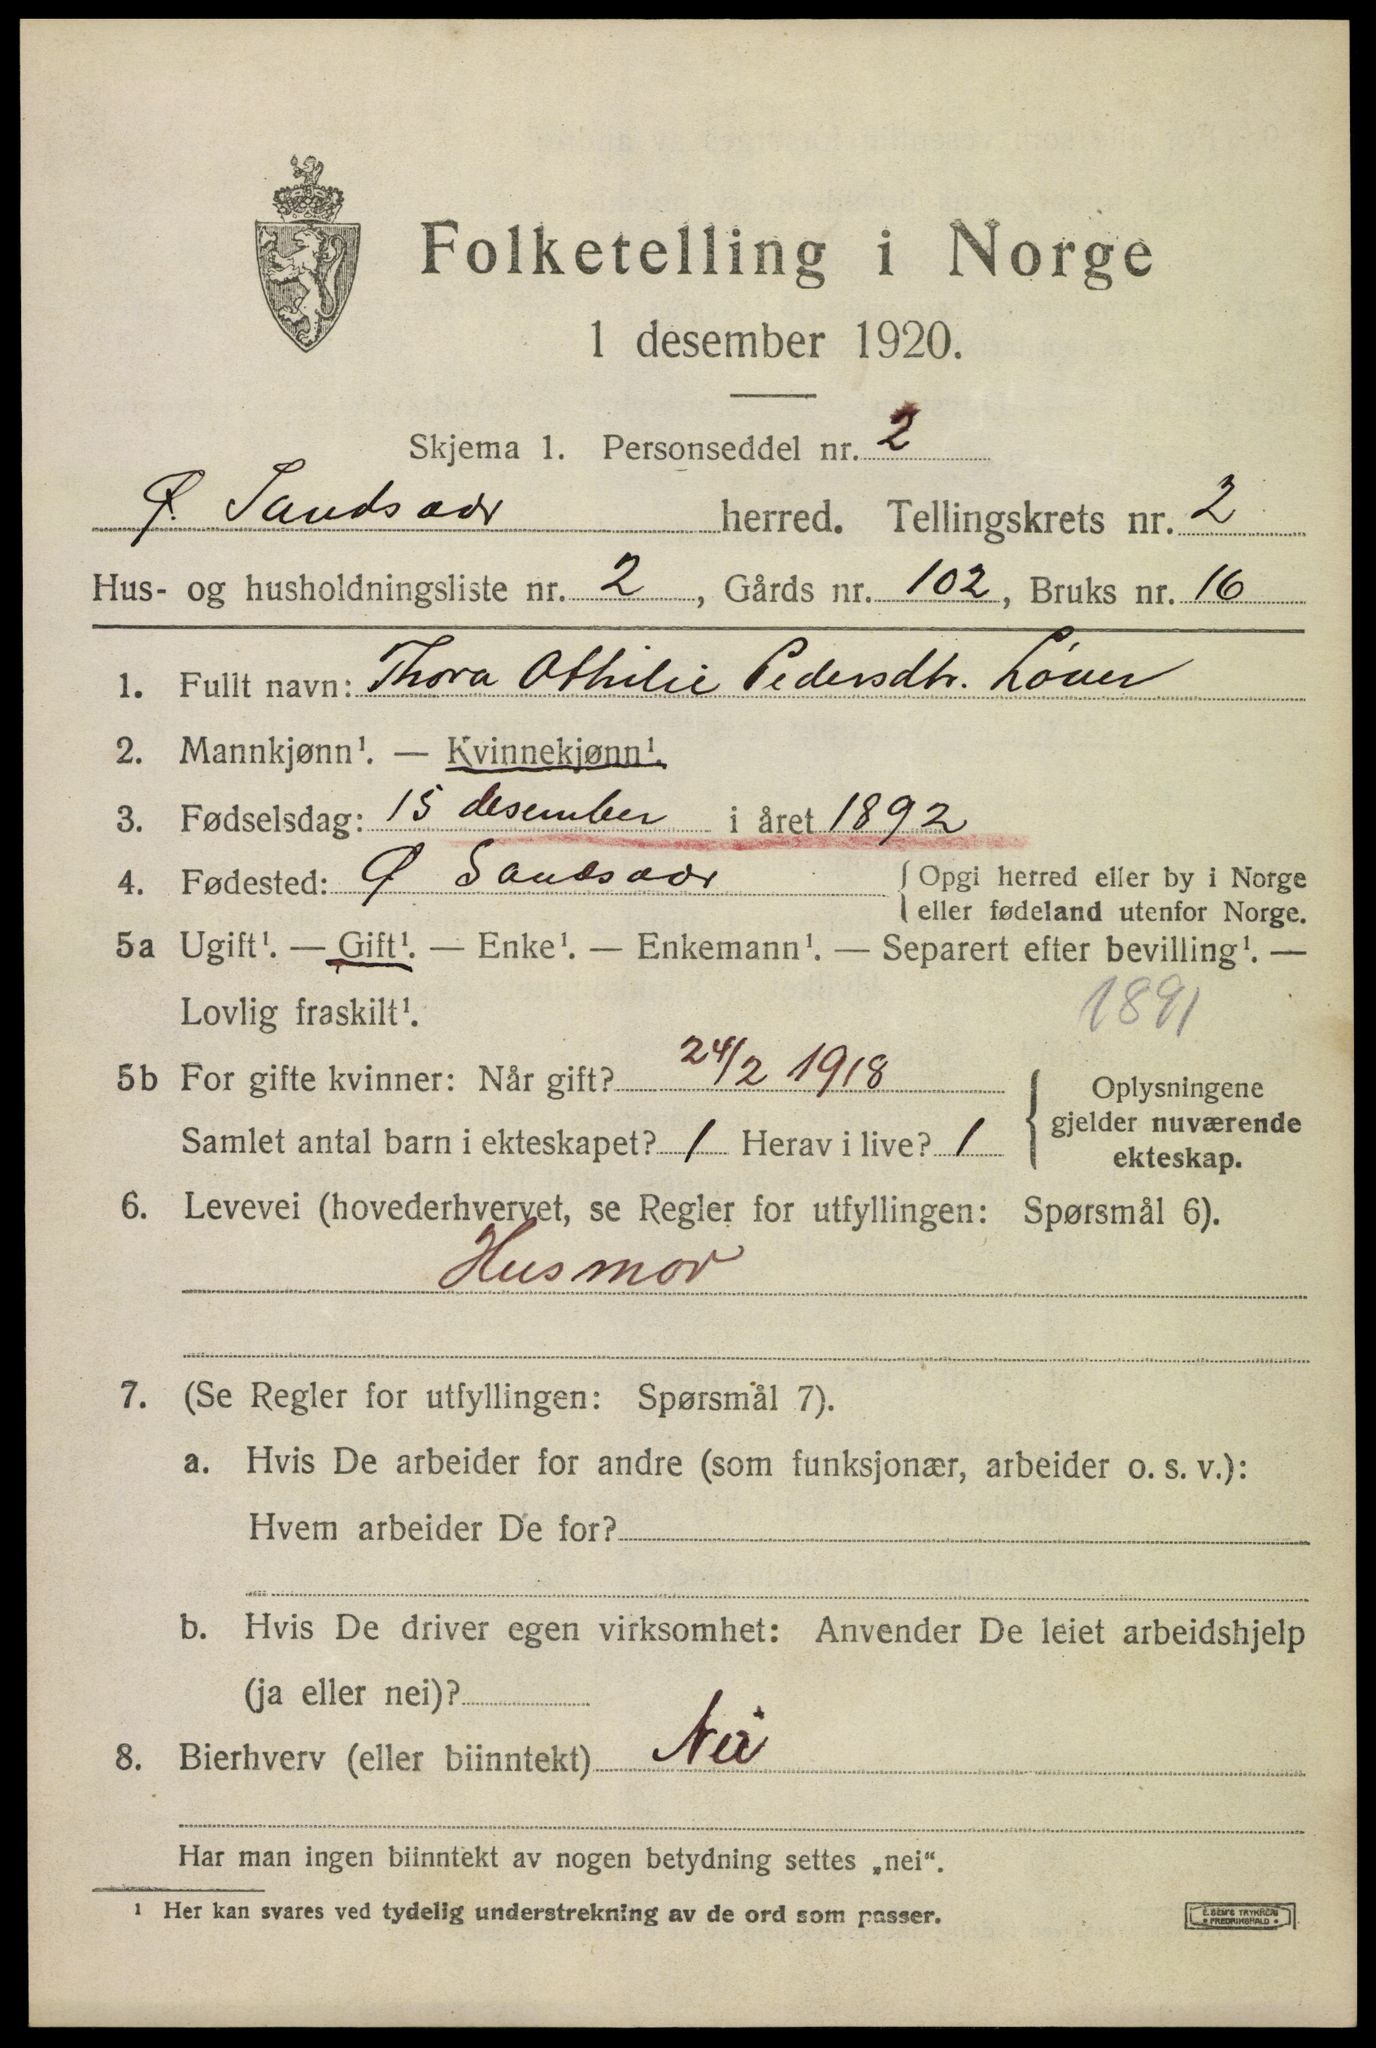 Folketelling i Norge
1 desember 1920.
Skjema 1. Personseddel nr. 2
Ø. Sandsvær herred. Tellingskrets nr. 2
Hus- og husholdningsliste nr. 2, Gårds nr. 102, Bruks nr. 16
1. Fullt navn: Thora Othilie Pedersdtr. Löver
2. Mannkjønn¹. — Kvinnekjønn¹.
3. Fødselsdag: 15 desember i året 1892
4. Fødested: Ø Sandsvær { Opgi herred eller by i Norge
eller fødeland utenfor Norge.
5a Ugift¹. — Gift¹. — Enke¹. — Enkemann¹. — Separert efter bevilling¹. —
Lovlig fraskilt¹. 1891
5b For gifte kvinner: Når gift? 24/2 1918 Oplysningene
gjelder nuværende
Samlet antal barn i ekteskapet? 1 Herav i live? 1 ekteskap.
6. Levevei (hovederhvervet, se Regler for utfyllingen: Spørsmål 6).
Husmor
7. (Se Regler for utfyllingen: Spørsmål 7).
a. Hvis De arbeider for andre (som funksjonær, arbeider o. s. v.):
Hvem arbeider De for?
b. Hvis De driver egen virksomhet: Anvender De leiet arbeidshjelp
(ja eller nei)?
8. Bierhverv (eller biinntekt) Nei
Har man ingen biinntekt av nogen betydning settes „nei“.
¹ Her kan svares ved tydelig understrekning av de ord som passer.
E. SEM'S TRYKKERI
• FREDRIKSHALD •